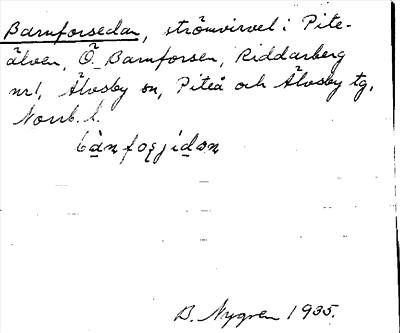 Barnforsedan, strömvirvel i Pite-
älven, Ö Barnforsen, Riddarberg
nr 1, Älvsby sn, Piteå och Älvsby tg,
Norrb. l.
B. Nygren 1935.